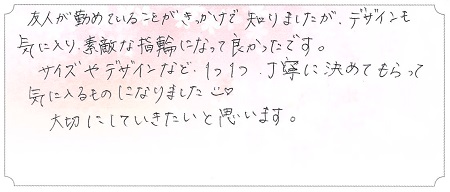 友人が勤めていることがきっかけで知りましたが、デザインも
気に入り、素敵な指輪になって良かったです。
サイズやデザインなど、1つ1つ、丁寧に決めてもらって
気に入るものになりました
大切にしていきたいと思います。